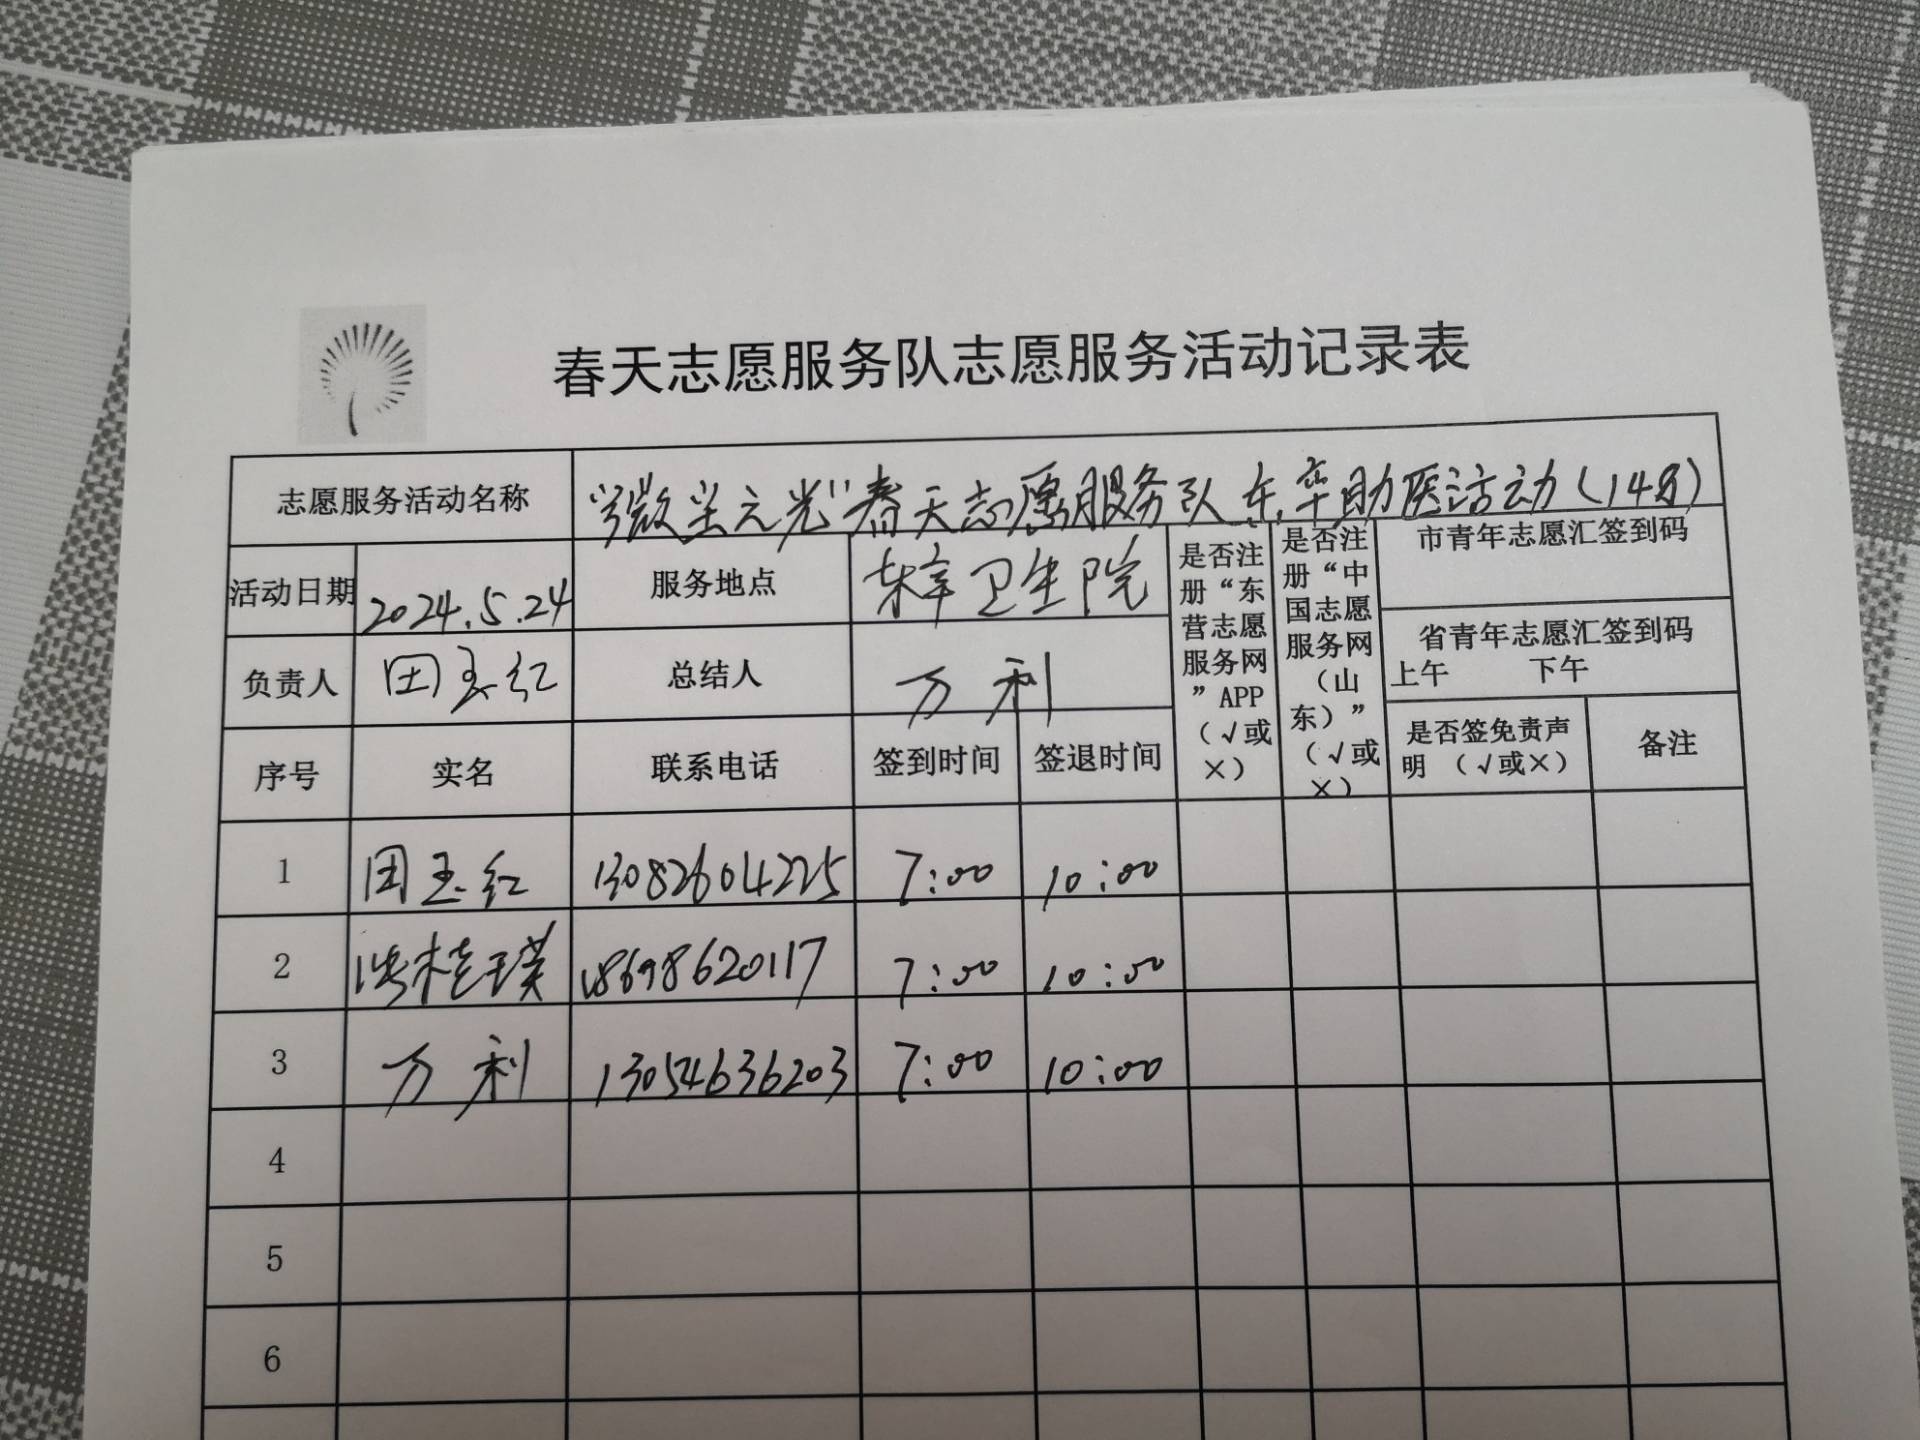 春天志愿服务队志愿服务活动记录表
志愿服务活动名称
“微尘之光”春天志愿服务队东辛助医活动(148)
活动日期
2024.5.24
服务地点
东辛卫生院
是否注册“东营志愿服务网”APP(√或×)
是否注册“中国志愿服务网(山东)”(√或×)
市青年志愿汇签到码
省青年志愿汇签到码
上午 下午
负责人
团玉红
总结人
万利
序号
实名
联系电话
签到时间
签退时间
是否签免责声明 (√或×)
备注
1 团玉红 13082604225 7:00 10:00
2 桂瑛 18698620117 7:00 10:00
3 万利 13054636203 7:00 10:00
4
5
6